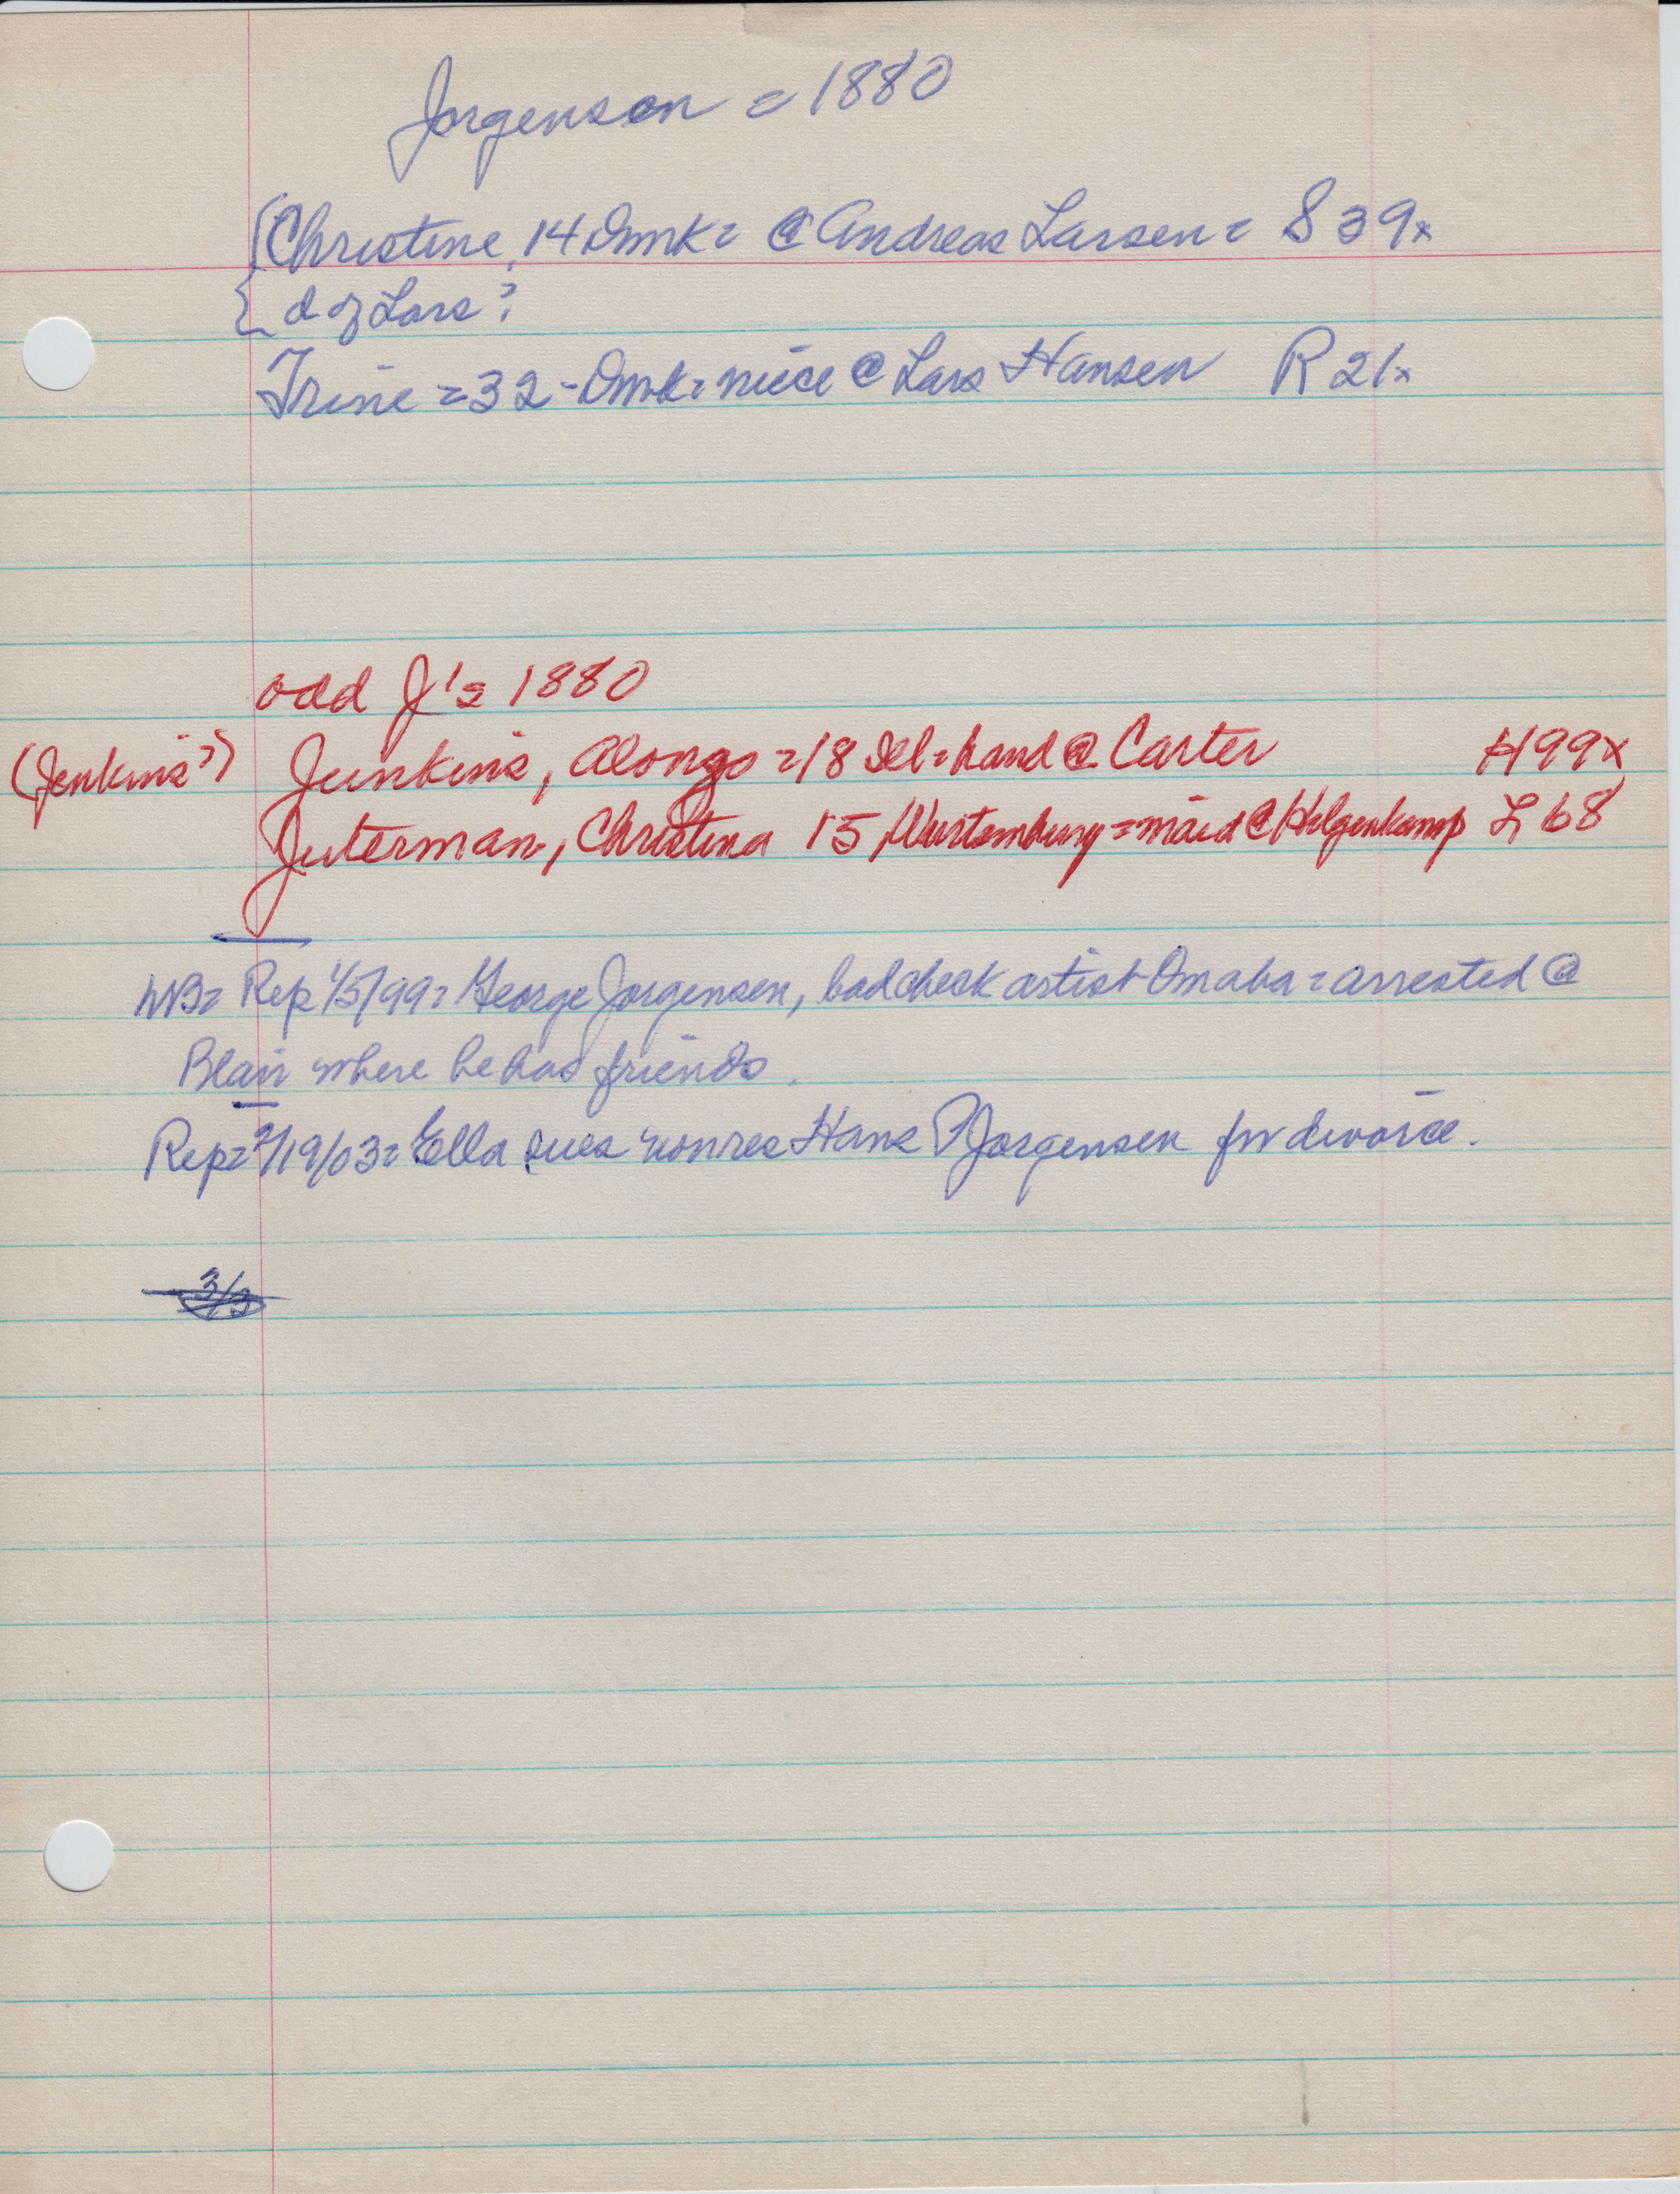 Jorgenson = 1880
Christine, 14 Dmk = @ Andreas Larsen = S 39x
d of Lars?
Trine = 32 - Dmk = niece @ Lars Hansen R 21x
odd J's 1880
(Jenkins?) Junkins, Alonzo = 18 Ill = hand @ Carter H99x
Juterman, Christina 15 Wurtemburg = maid @ Hilgenkamp L 68
NB = Rep 1/5/99 = George Jorgensen, bad check artist Omaha = arrested @
Blair where he has friends.
Rep = /19/03 = Ella sues nonres Hans P Jorgensen for divorce.
3/3